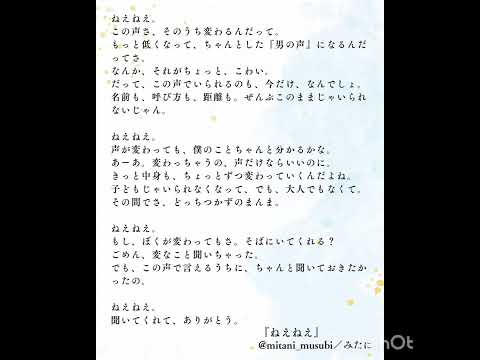 ねえねえ。
この声さ、そのうち変わるんだって。
もっと低くなって、ちゃんとした『男の声』になるんだ
ってさ。
なんか、それがちょっと、こわい。
だって、この声でいられるのも、今だけ、なんでしょ。
名前も、呼び方も、距離も。ぜんぶこのままじゃいられ
ないじゃん。
ねえねえ。
声が変わっても、僕のことちゃんと分かるかな。
あーあ。変わっちゃうの、声だけならいいのに。
きっと中身も、ちょっとずつ変わっていくんだよね。
子どもじゃいられなくなって、でも、大人でもなくて。
その間でさ、どっちつかずのまんま。
ねえねえ。
もし、ぼくが変わってもさ。そばにいてくれる？
ごめん、変なこと聞いちゃった。
でも、この声で言えるうちに、ちゃんと聞いておきたか
ったの、
ねえねえ。
聞いてくれて、ありがとう。
『ねえねえ』
@mitani_musubi／みたに